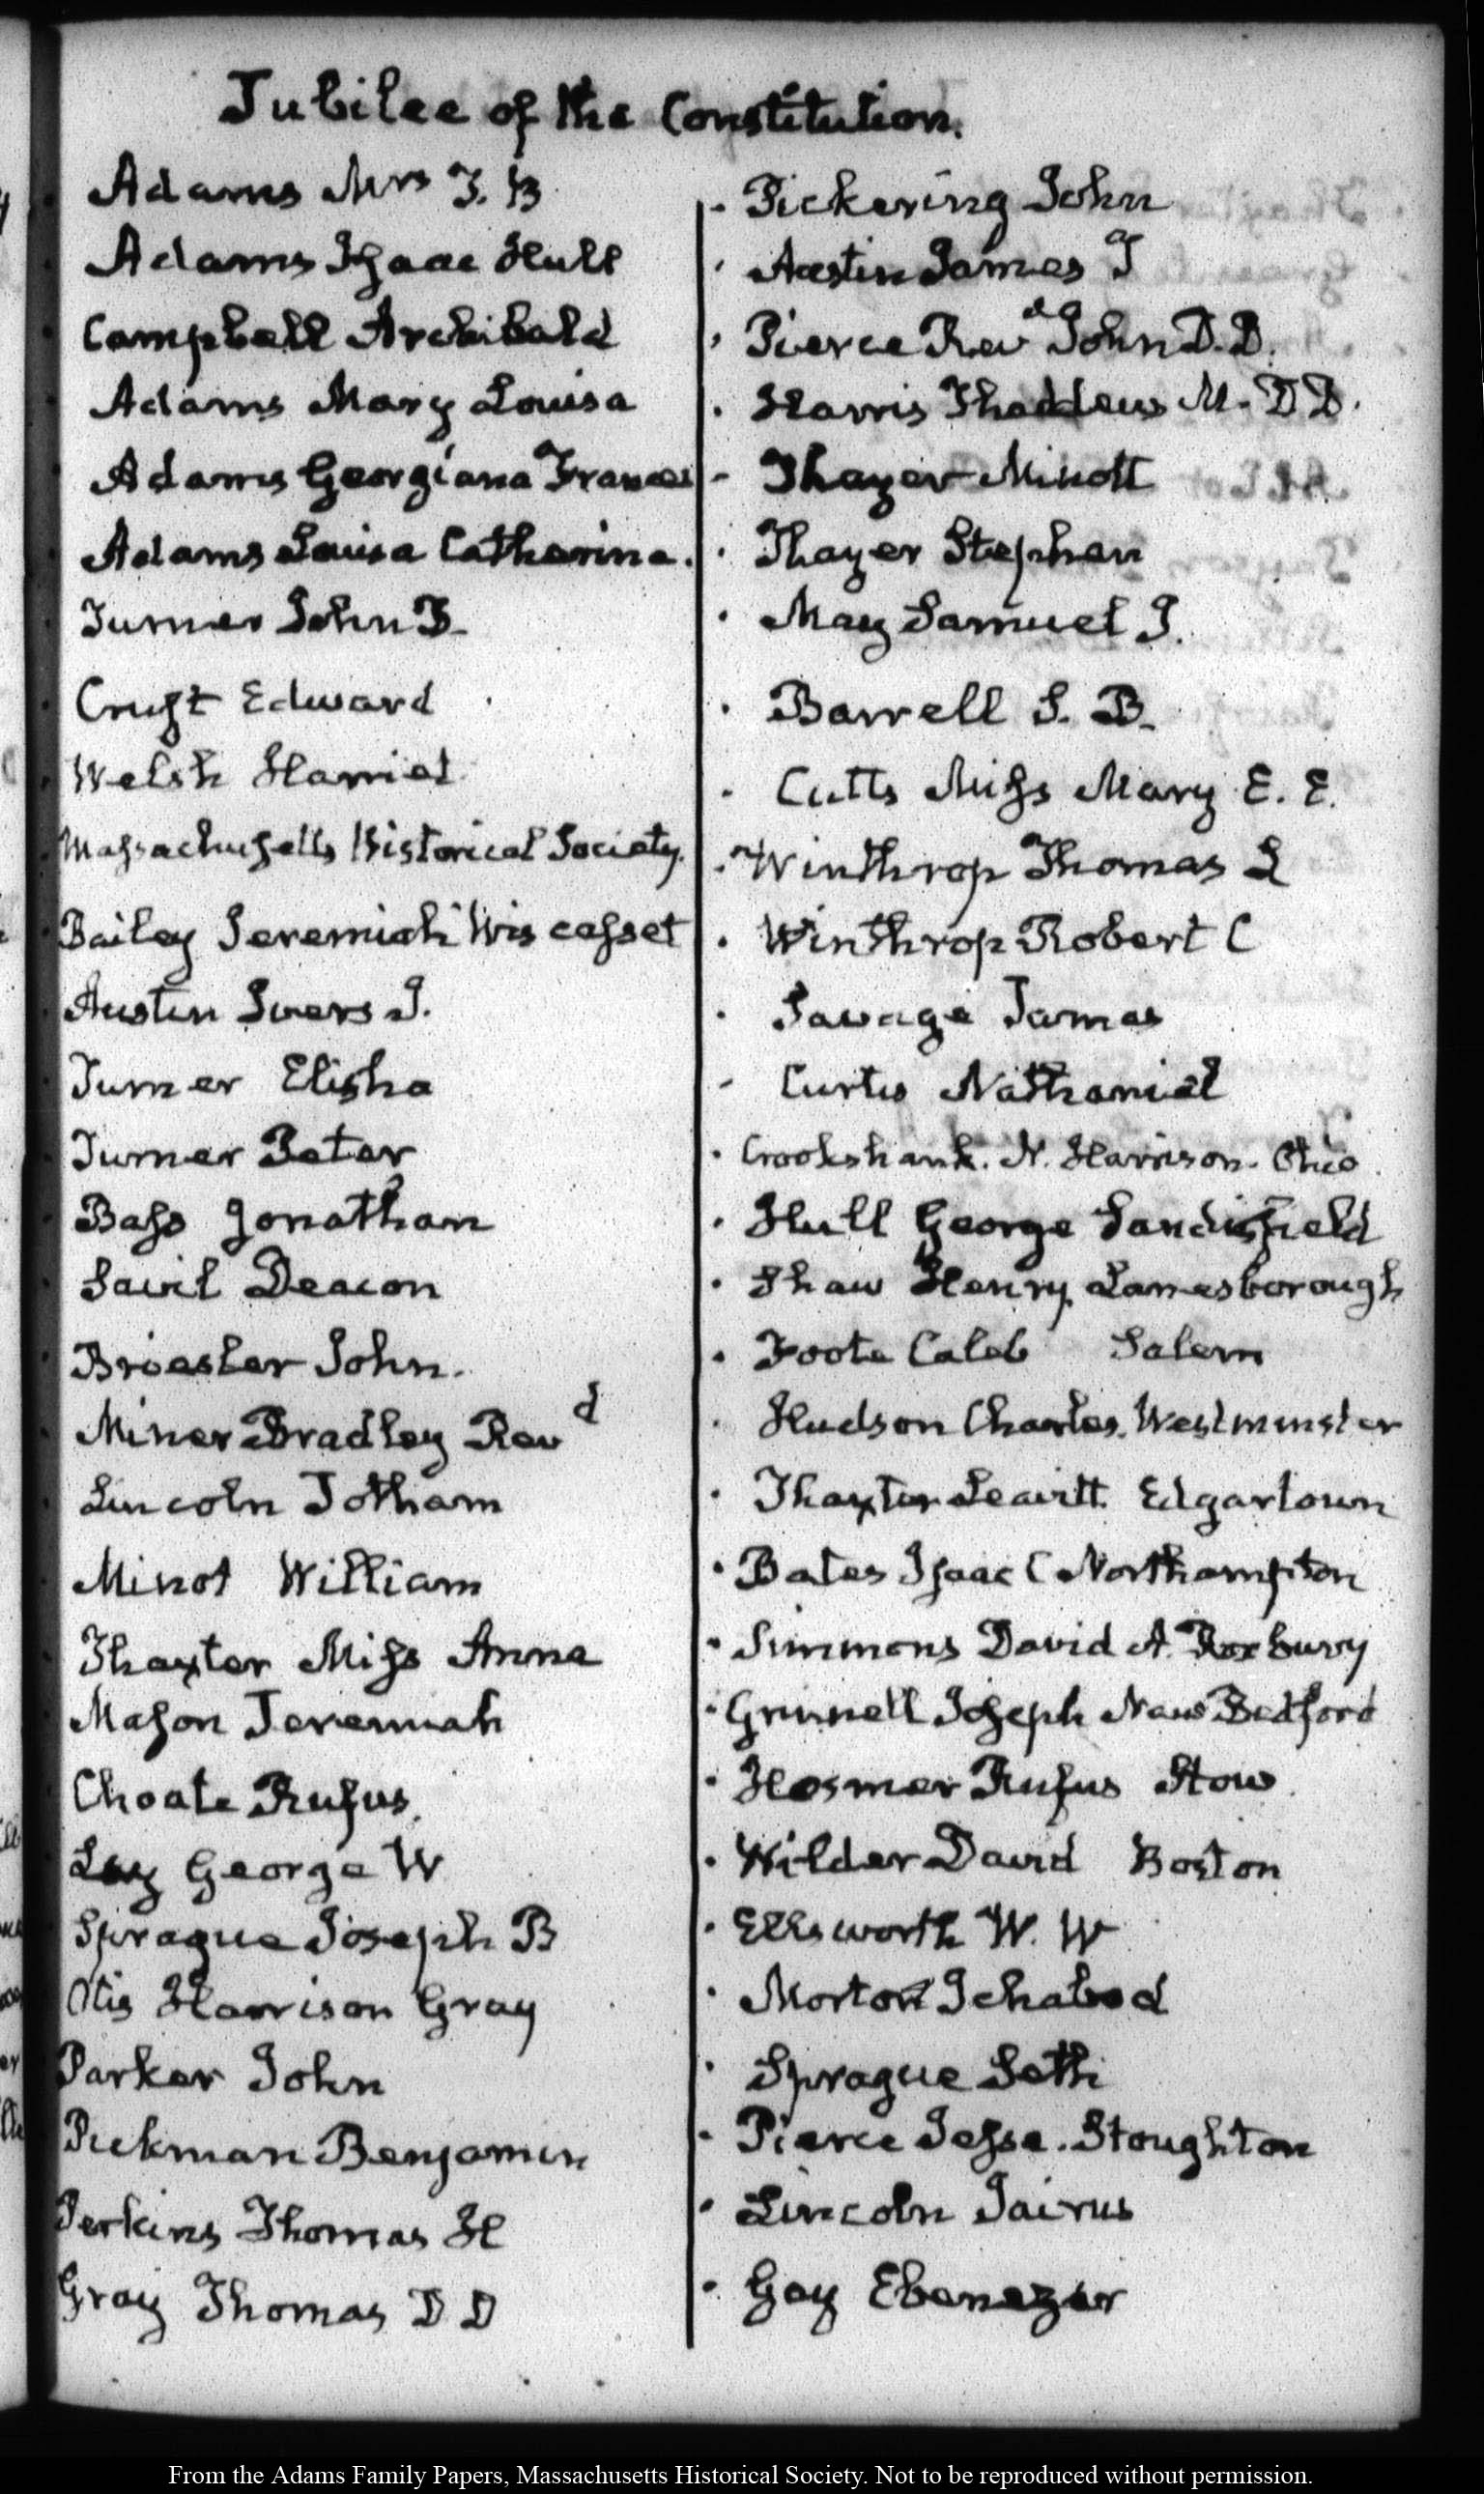 Jubilee of the Constitution.
Adams Mrs T. B
Adams Isaac Hull
Campbell Archibald
Adams Mary Louisa
Adams Georgiana Frances
Adams Louisa Catherine.
Turner John B.
Cruft Edward
Welsh Harriet
Massachusetts Historical Society.
Bailey Jeremiah Wiscasset
Austin Ivers J.
Turner Elisha
Turner Peter
Bass Jonathan
Savil Deacon
Briesler John.
Miner Bradley Revd
Lincoln Jotham
Minot William
Thaxter Miss Anna
Mason Jeremiah
Choate Rufus.
Lay George W
Sprague Joseph B
Otis Harrison Gray
Parker John
Pickman Benjamin
Perkins Thomas H
Gray Thomas D D
Pickering John
Austin James T
Pierce Revd John D.D.
Harris Thaddeus M. D D.
Thayer Minott
Thayer Stephen
May Samuel J.
Barrell S. B.
Cutts Miss Mary E. E.
Winthrop Thomas L
Winthrop Robert C
Savage James
Curtis Nathaniel
Crookshank. N. Harrison. Ohio.
Hull George Sandisfield
Shaw Henry Lanesborough
Foote Caleb Salem
Hudson Charles. Westminster
Thaxter Leavitt. Edgartown
Bates Isaac C Northampton
Simmons David A. Roxbury
Grinnell Joseph New Bedford
Hosmer Rufus Stow.
Wilder David Boston
Ellsworth W. W
Morton Ichabod
Sprague Seth
Pierce Jesse. Stoughton
Lincoln Jairus
Gay Ebenezer
From the Adams Family Papers, Massachusetts Historical Society. Not to be reproduced without permission.